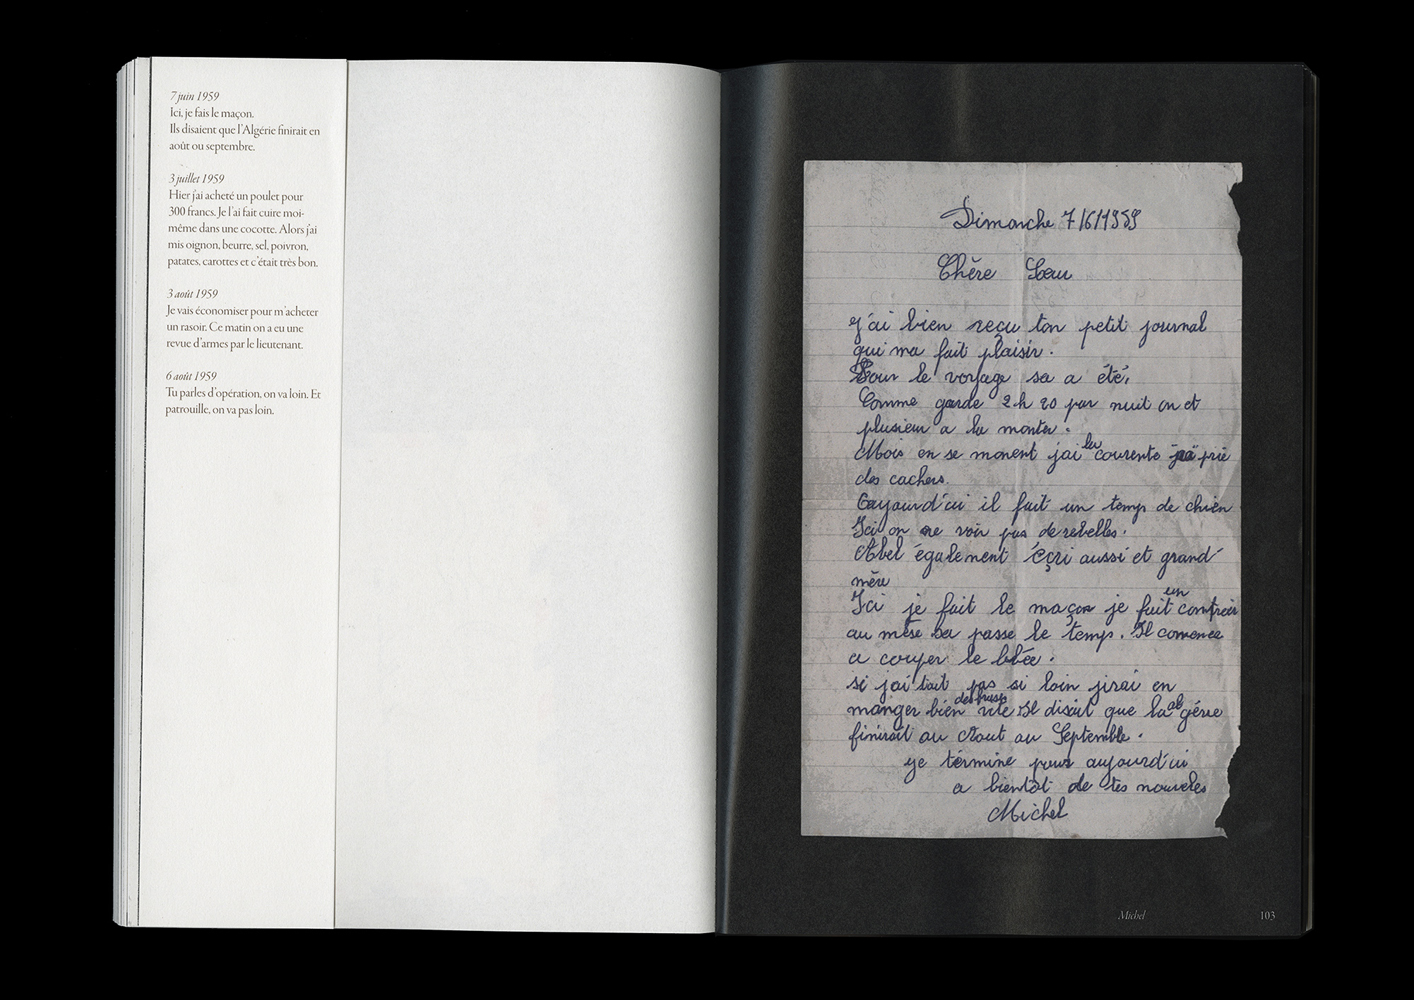 7 juin 1959
Ici, je fais le maçon.
Ils disaient que l'Algérie finirait en
août ou septembre.
3 juillet 1959
Hier j'ai acheté un poulet pour
300 francs. Je l'ai fait cuire moi-
même dans une cocotte. Alors j'ai
mis oignon, beurre, sel, poivron,
patates, carottes et c'était très bon.
3 août 1959
Je vais économiser pour m'acheter
un rasoir. Ce matin on a eu une
revue d'armes par le lieutenant.
6 août 1959
Tu parles d'opération, on va loin. Et
patrouille, on va pas loin.
Dimanche 7/6/1959
Chère Sœur
j'ai bien reçu ton petit journal
qui ma fait plaisir.
Pour le voyage sa a été.
Comme garde 2h20 par nuit on et
plusieur a la monter.
Mois en se moment jai la courente jai prie
des cachers.
Aujourd'ui il fait un temp de chien
Ici on ne voir pas de rebelles.
Abel également écri aussi et grand
mère
Ici je fait le maçon je fait un
au mese sa passe le temp. Il comence
a couper le blée.
si jai tait pas si loin jirai en
manger bien vite Il disait que la algérie
finirait au Aout au Septembre.
je términe pour aujourd'ui
a bientôt de tes nouveles
Michel
Michel
103